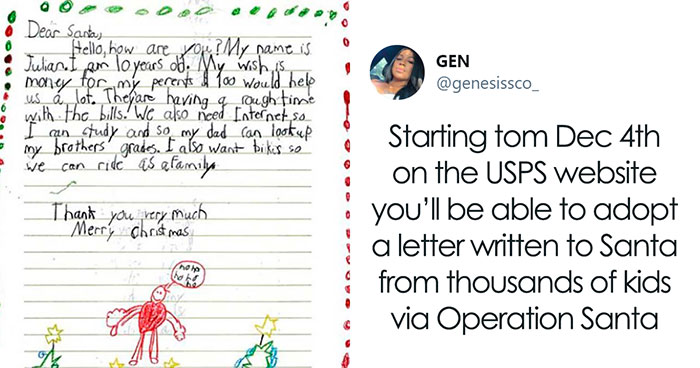 Dear Santa,
Hello, how are you? My name is
Julian. I am 10 years old. My wish is
money for my perents $100 would help
us a lot. Theyare having a rough time
with the bills. We also need Internet so
I can study and so my dad can lookup
my brothers grades. I also want bikes so
we can ride as a family.
Thank you very much
Merry Christmas
ho ho
ho ho
ho
GEN
@genesissco_
Starting tom Dec 4th
on the USPS website
you'll be able to adopt
a letter written to Santa
from thousands of kids
via Operation Santa